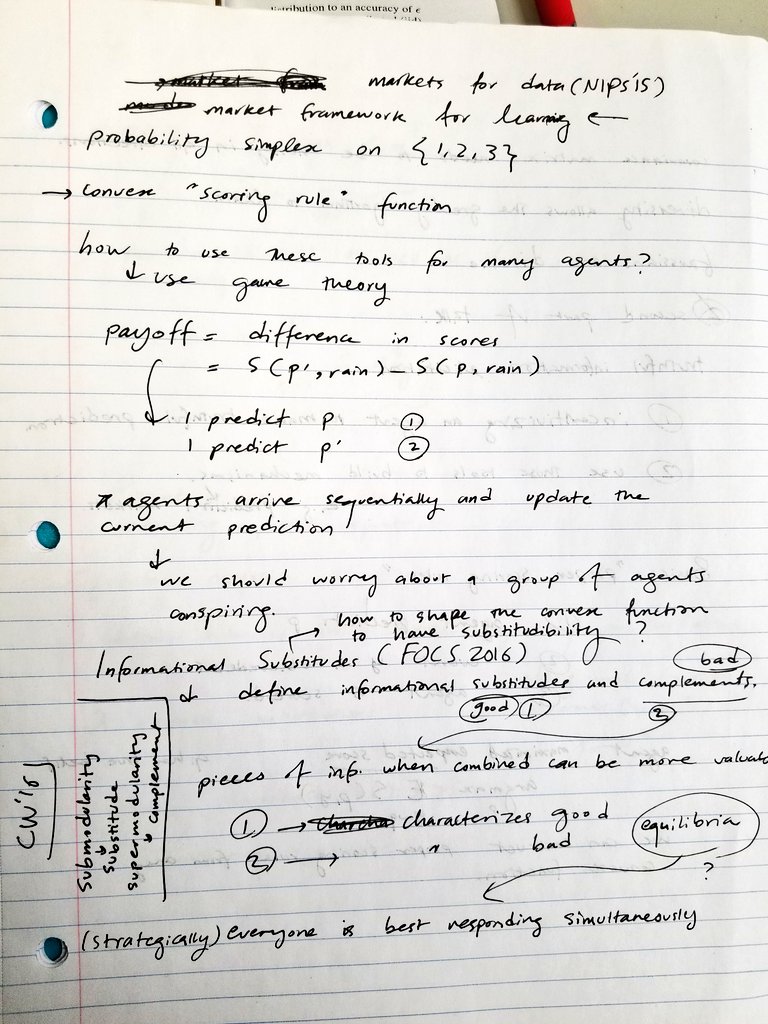 tribution to an accuracy of ε
markets for data (NIPS'15)
market framework for learning ←
probability simplex on {1,2,3}
→ convex "scoring rule" function
how to use these tools for many agents?
↓ use game theory
payoff = difference in scores
= S(p', rain) - S(p, rain)
1 predict p ①
1 predict p' ②
* agents arrive sequentially and update the
current prediction
↓
we should worry about a group of agents
conspiring.
how to shape the convex function
to have substitudibility ?
Informational Substitudes (FOCS 2016)
bad
↓ define informational substitudes and complements.
good ① ②
pieces of inf. when combined can be more valuab
① → characterizes good equilibria
② → " bad
?
(strategically) everyone is best responding simultaneously
CW'16
Submodularity
↓ substitude
supermodularity
↓ complement